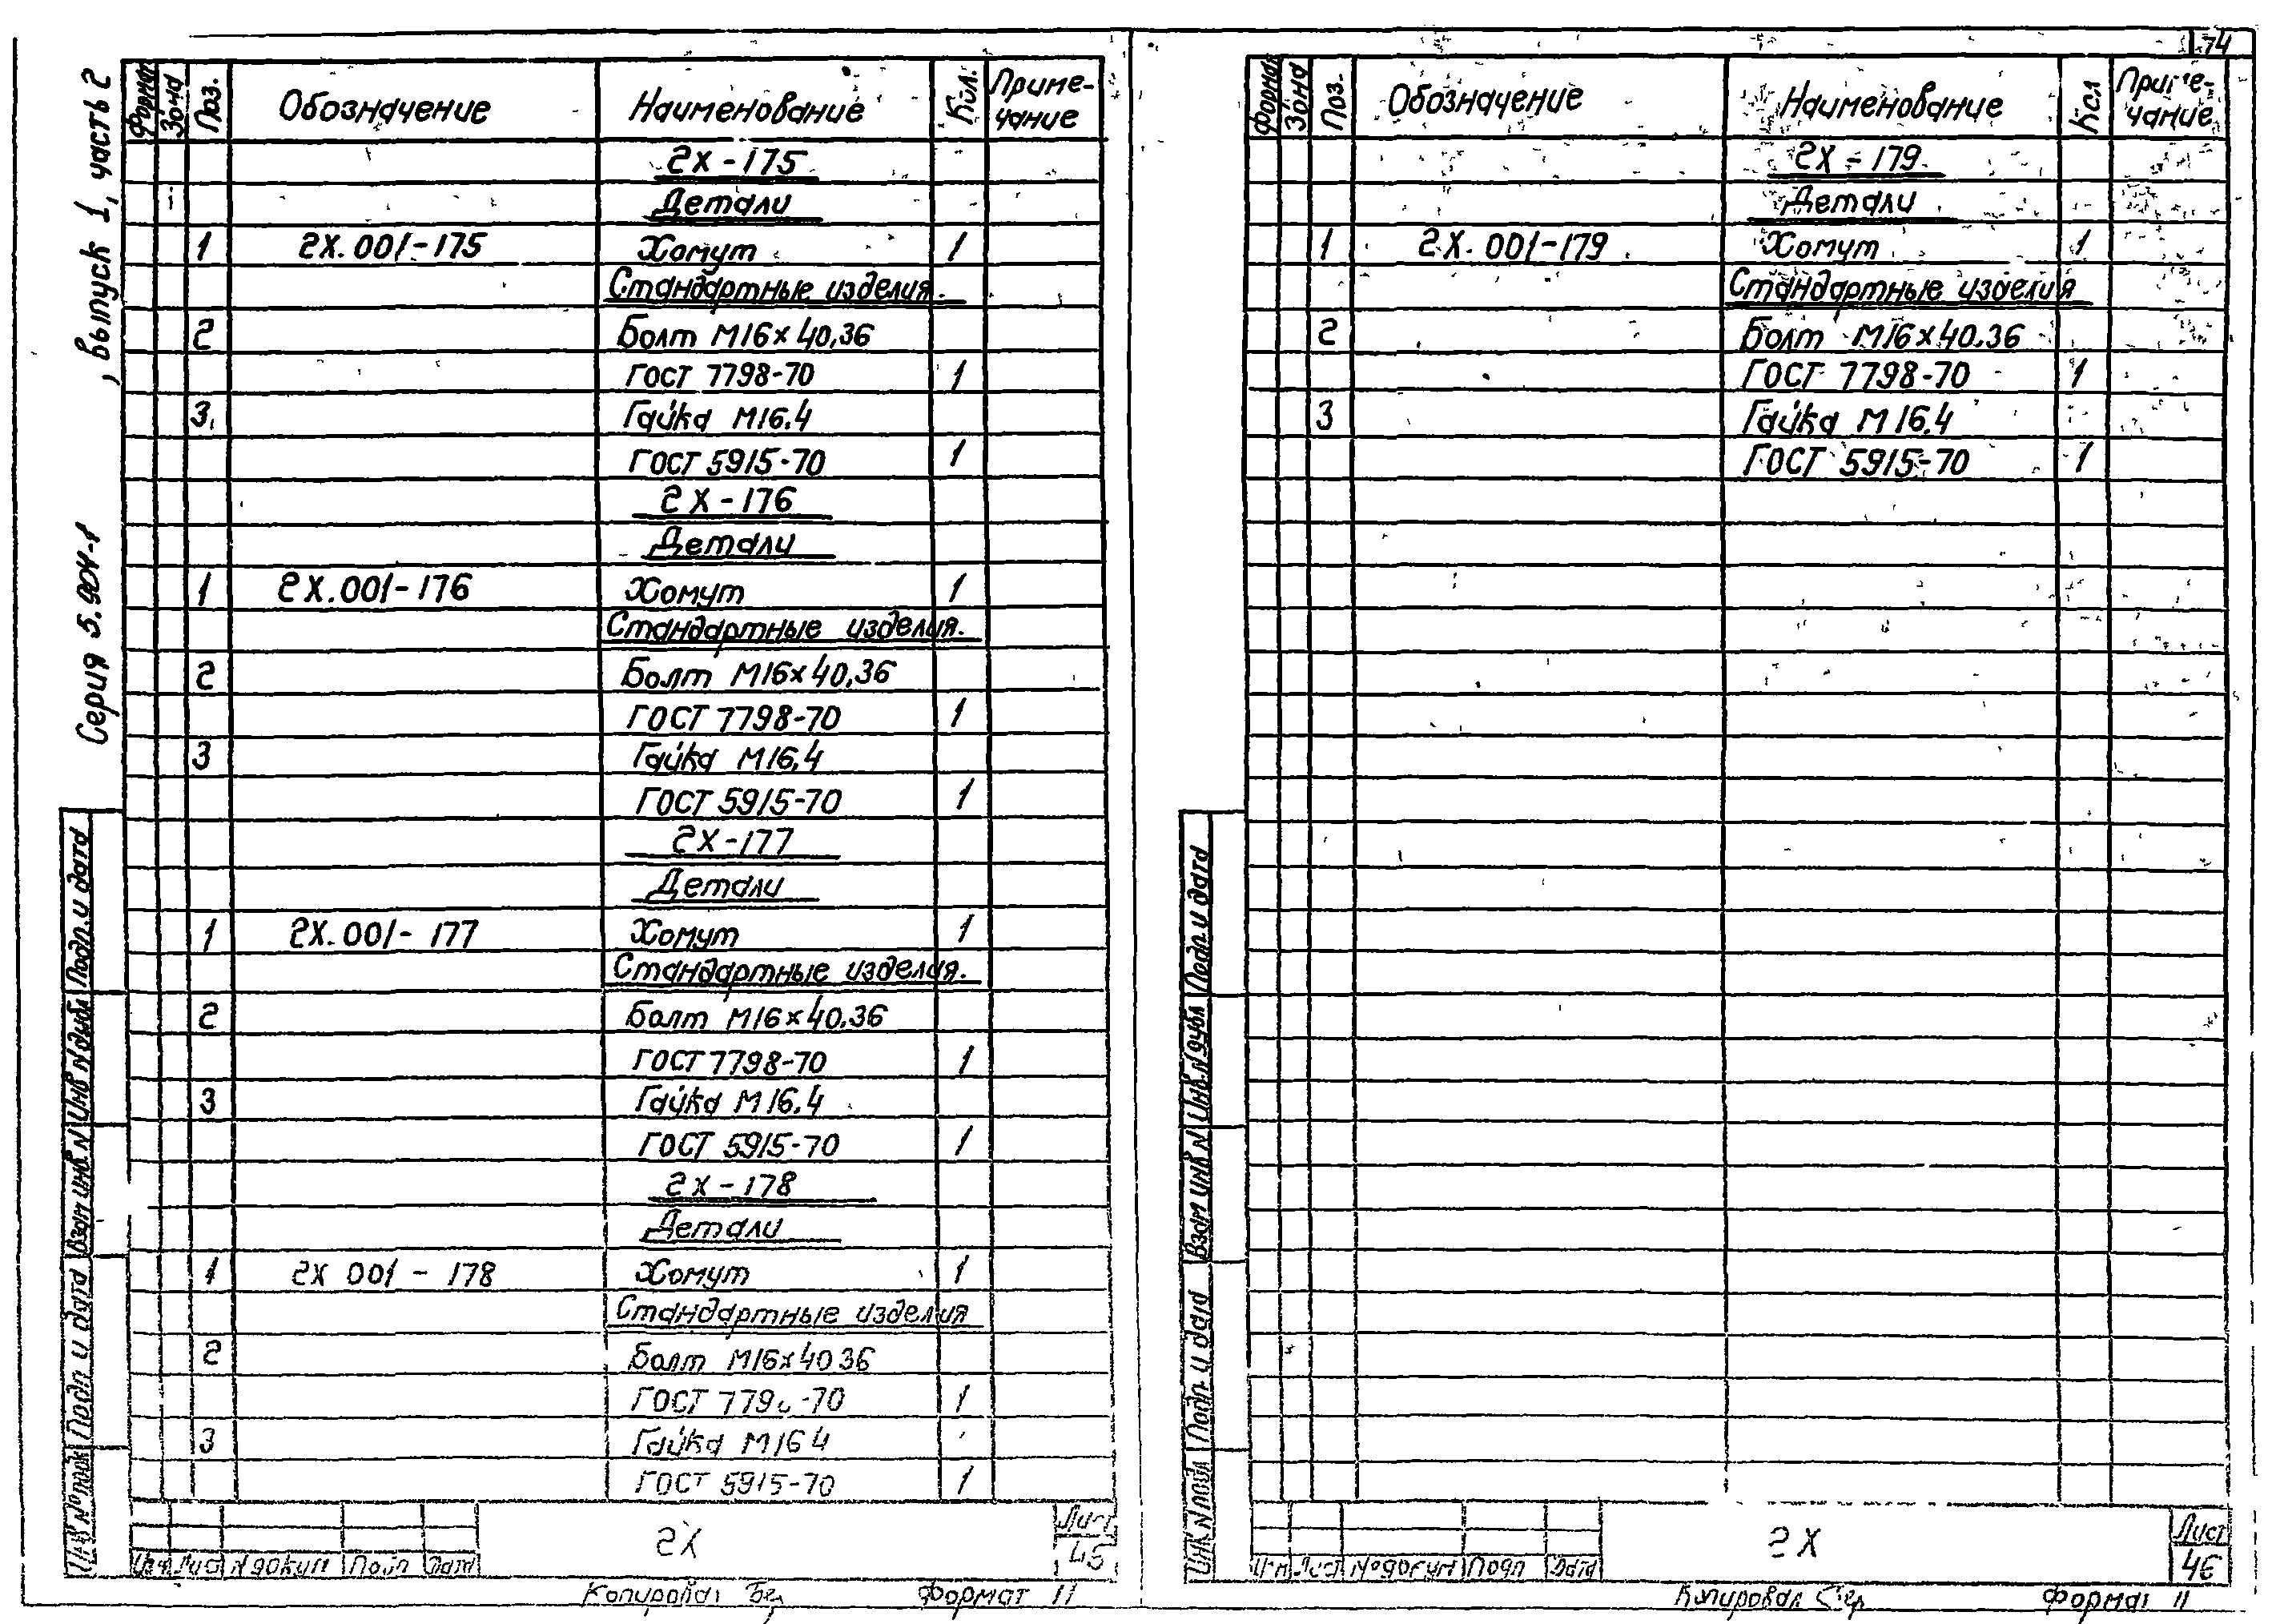 74
Серия 5.904-1 , выпуск 1, часть 2
Формат Зона Поз. Обозначение Наименование Кол. Приме-
чание
2Х - 175
Детали
1 2Х.001-175 Хомут 1
Стандартные изделия.
2 Болт М16х40.36
ГОСТ 7798-70 1
3 Гайка М16.4
ГОСТ 5915-70 1
2Х - 176
Детали
1 2Х.001-176 Хомут 1
Стандартные изделия.
2 Болт М16х40.36
ГОСТ 7798-70 1
3 Гайка М16.4
ГОСТ 5915-70 1
2Х - 177
Детали
1 2Х.001-177 Хомут 1
Стандартные изделия.
2 Болт М16х40.36
ГОСТ 7798-70 1
3 Гайка М16.4
ГОСТ 5915-70 1
2Х - 178
Детали
1 2Х 001 - 178 Хомут 1
Стандартные изделия
2 Болт М16х40 36
ГОСТ 7798-70 1
3 Гайка М16 4
ГОСТ 5915-70 1
Инв № подл Подп и дата Взам инв. N Инв N дубл Подп. и дата
Изм Лист N докум Подп Дата
2Х
Лист
45
Копировал Формат 11
Формат Зона Поз. Обозначение Наименование Кол Приме-
чание
2Х - 179
Детали
1 2Х.001-179 Хомут 1
Стандартные изделия
2 Болт М16х40.36
ГОСТ 7798-70 1
3 Гайка М16.4
ГОСТ 5915-70 1
Инв N подл Подп. и дата Взам инв N Инв.N дубл Подп. и дата
Изм Лист № докум Подп Дата
2Х
Лист
46
Копировал Формат 11